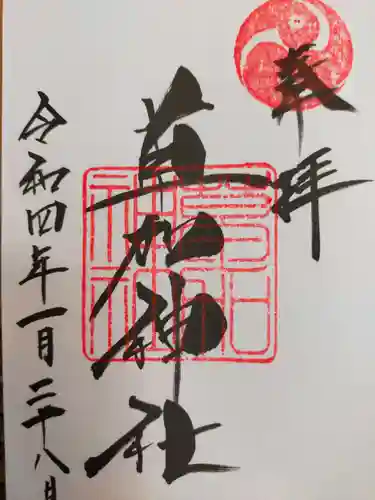 奉拝
草加神社
草加神社
令和四年一月二十八日